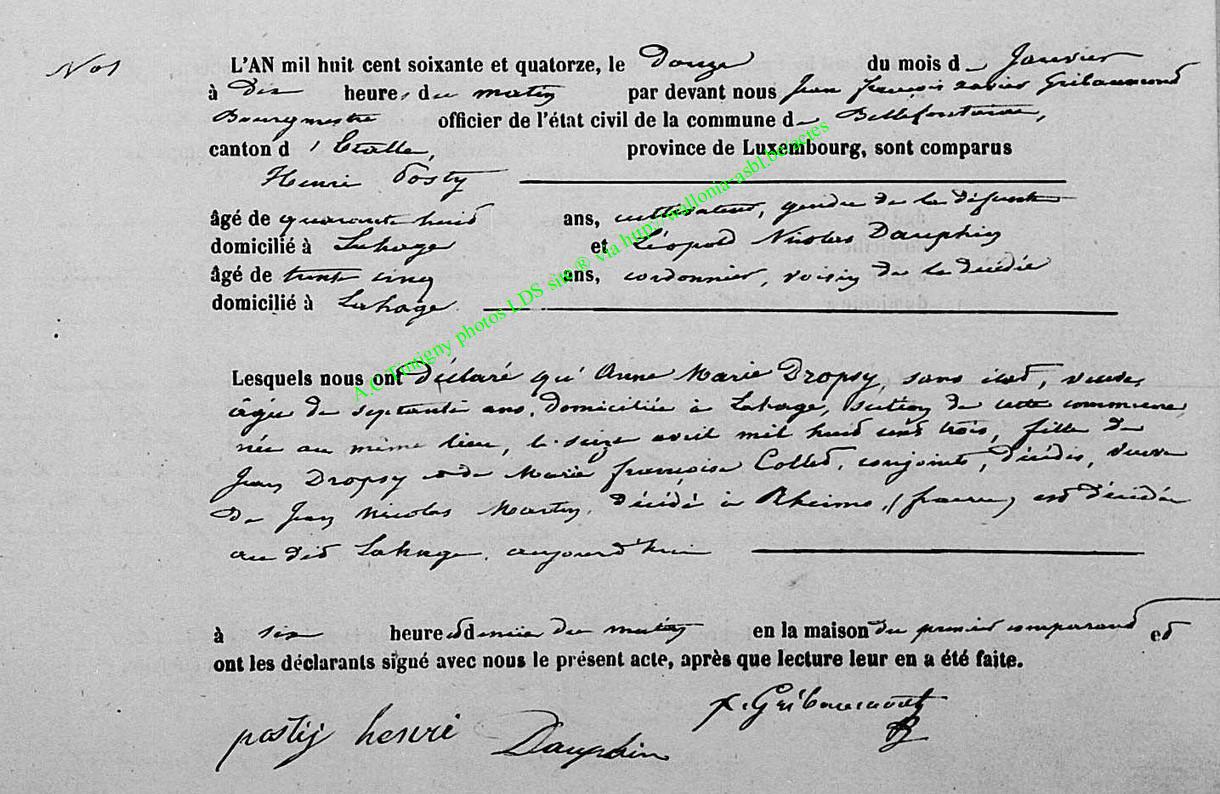 No 1
L'AN mil huit cent soixante et quatorze, le Douze du mois de Janvier
à Dix heures du matin par devant nous Jean françois xavier Gribaumont
Bourgmestre officier de l'état civil de la commune de Bellefontaine,
canton d'Etalle, province de Luxembourg, sont comparus
Henri Posty
âgé de quarante huit ans, cultivateur, gendre de la défunte
domicilié à Lahage et Léopold Nicolas Dauphin
âgé de trente cinq ans, cordonnier, voisin de la décédée
domicilié à Lahage.
Lesquels nous ont déclaré qu'Anne Marie Dropsy, sans état, veuve,
âgée de septante ans, domiciliée à Lahage, section de cette commune,
née au même lieu, le seize avril mil huit cent trois, fille de
Jean Dropsy et de Marie françoise Collet, conjoints, décédés, veuve
de Jean Nicolas Martin, décédé à Rheims, (france) est décédée
au dit Lahage, aujourd'hui
à six heures et demie du matin en la maison du premier comparant et
ont les déclarants signé avec nous le présent acte, après que lecture leur en a été faite.
postij henri Dauphin x. Gribaumont
A.C Tintigny photos LDS site ® via http://wallonia-asbl.be/actes